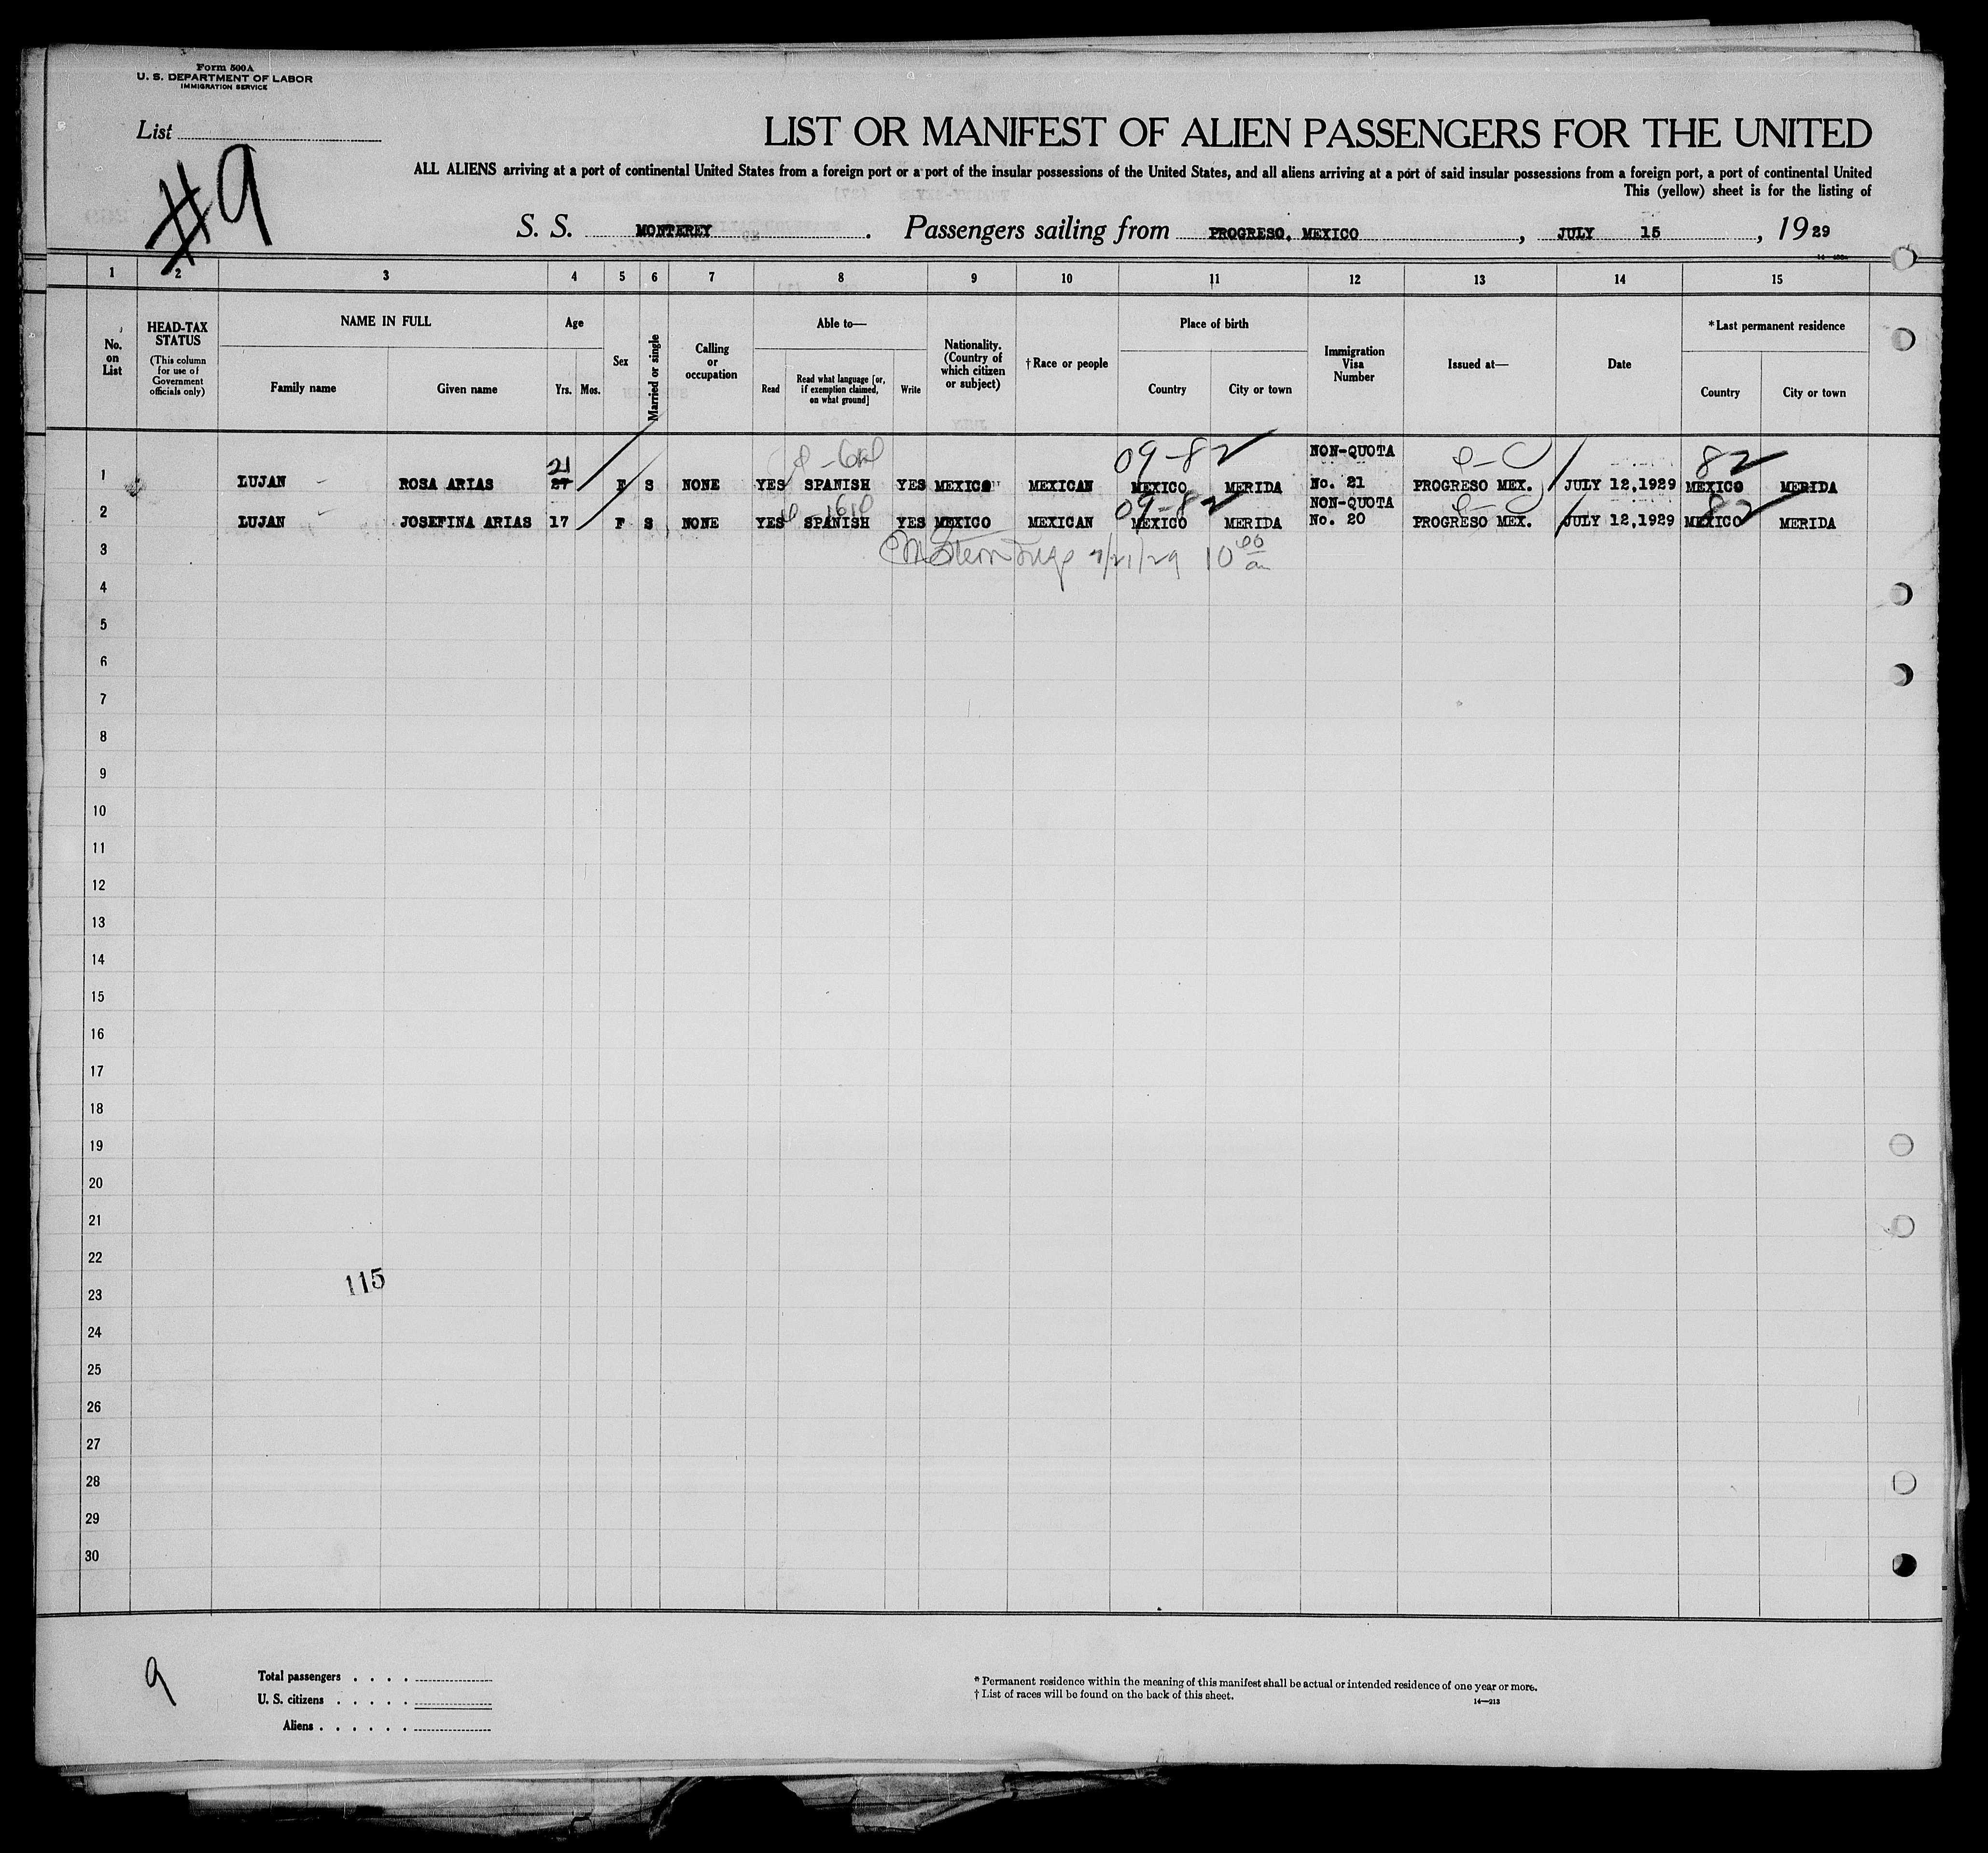 Form 500A
U. S. DEPARTMENT OF LABOR
IMMIGRATION SERVICE
List
#9
LIST OR MANIFEST OF ALIEN PASSENGERS FOR THE UNITED
ALL ALIENS arriving at a port of continental United States from a foreign port or a port of the insular possessions of the United States, and all aliens arriving at a port of said insular possessions from a foreign port, a port of continental United
This (yellow) sheet is for the listing of
S. S. MONTEREY. Passengers sailing from PROGRESO, MEXICO, JULY 15, 1929
1 2 3 4 5 6 7 8 9 10 11 12 13 14 15
No. on List
HEAD-TAX STATUS (This column for use of Government officials only)
NAME IN FULL
Family name
Given name
Age
Yrs.
Mos.
Sex
Married or single
Calling or occupation
Able to—
Read
Read what language [or, if exemption claimed, on what ground]
Write
Nationality. (Country of which citizen or subject)
†Race or people
Place of birth
Country
City or town
Immigration Visa Number
Issued at—
Date
*Last permanent residence
Country
City or town
09-82 82
21
1 LUJAN - ROSA ARIAS 27 F S NONE YES SPANISH YES MEXICO MEXICAN MEXICO MERIDA NON-QUOTA No. 21 PROGRESO MEX. JULY 12,1929 MEXICO MERIDA
09-82 82
2 LUJAN - JOSEFINA ARIAS 17 F S NONE YES SPANISH YES MEXICO MEXICAN MEXICO MERIDA NON-QUOTA No. 20 PROGRESO MEX. JULY 12,1929 MEXICO MERIDA
3 7/21/29 10
4
5
6
7
8
9
10
11
12
13
14
15
16
17
18
19
20
21
22
115
23
24
25
26
27
28
29
30
9
Total passengers . . . .
U. S. citizens . . . . .
Aliens . . . . . .
* Permanent residence within the meaning of this manifest shall be actual or intended residence of one year or more.
† List of races will be found on the back of this sheet.
14—213